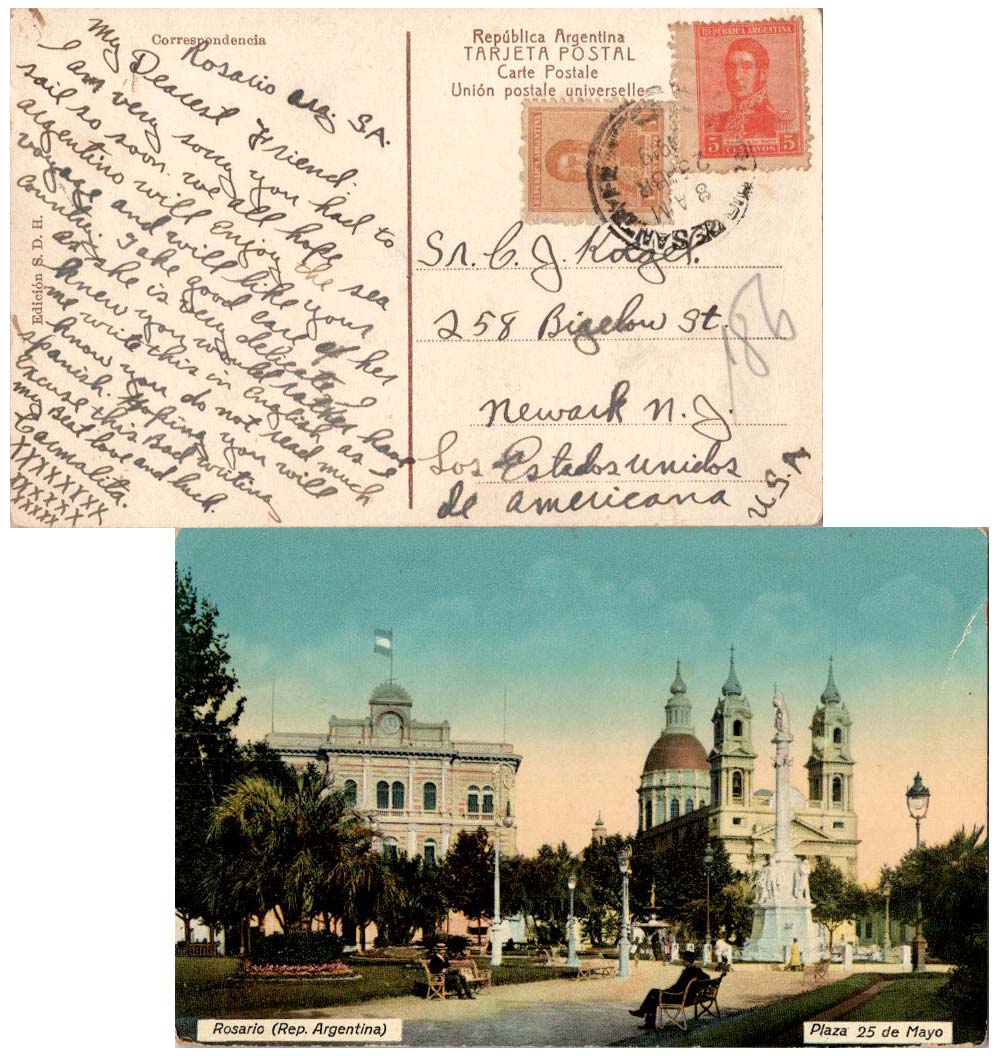 Correspondencia
Rosario arg S.A.
My Dearest Friend.
I am very sorry you had to
sail so soon. we all hope
argentino will enjoy the sea
voyage and will like your
country. Take good care of her
as she is very delicate. I
knew you would rather have
me write this in English as I
know you do not read much
spanish. Hoping you will
Excuse this Bad writing
my Best love and luck.
Carmalita.
XXXXXXX
XXXXX
XXXXX
Edición S. D. H.
República Argentina
TARJETA POSTAL
Carte Postale
Unión postale universelle
REPÚBLICA ARGENTINA
5 CENTAVOS 5
REPÚBLICA ARGENTINA
8 AM
Sr. C. J. Kolget.
258 Bigelow St.
Newark N. J.
Los Estados unidos
de americana
U.S.A
186
Rosario (Rep. Argentina)
Plaza 25 de Mayo